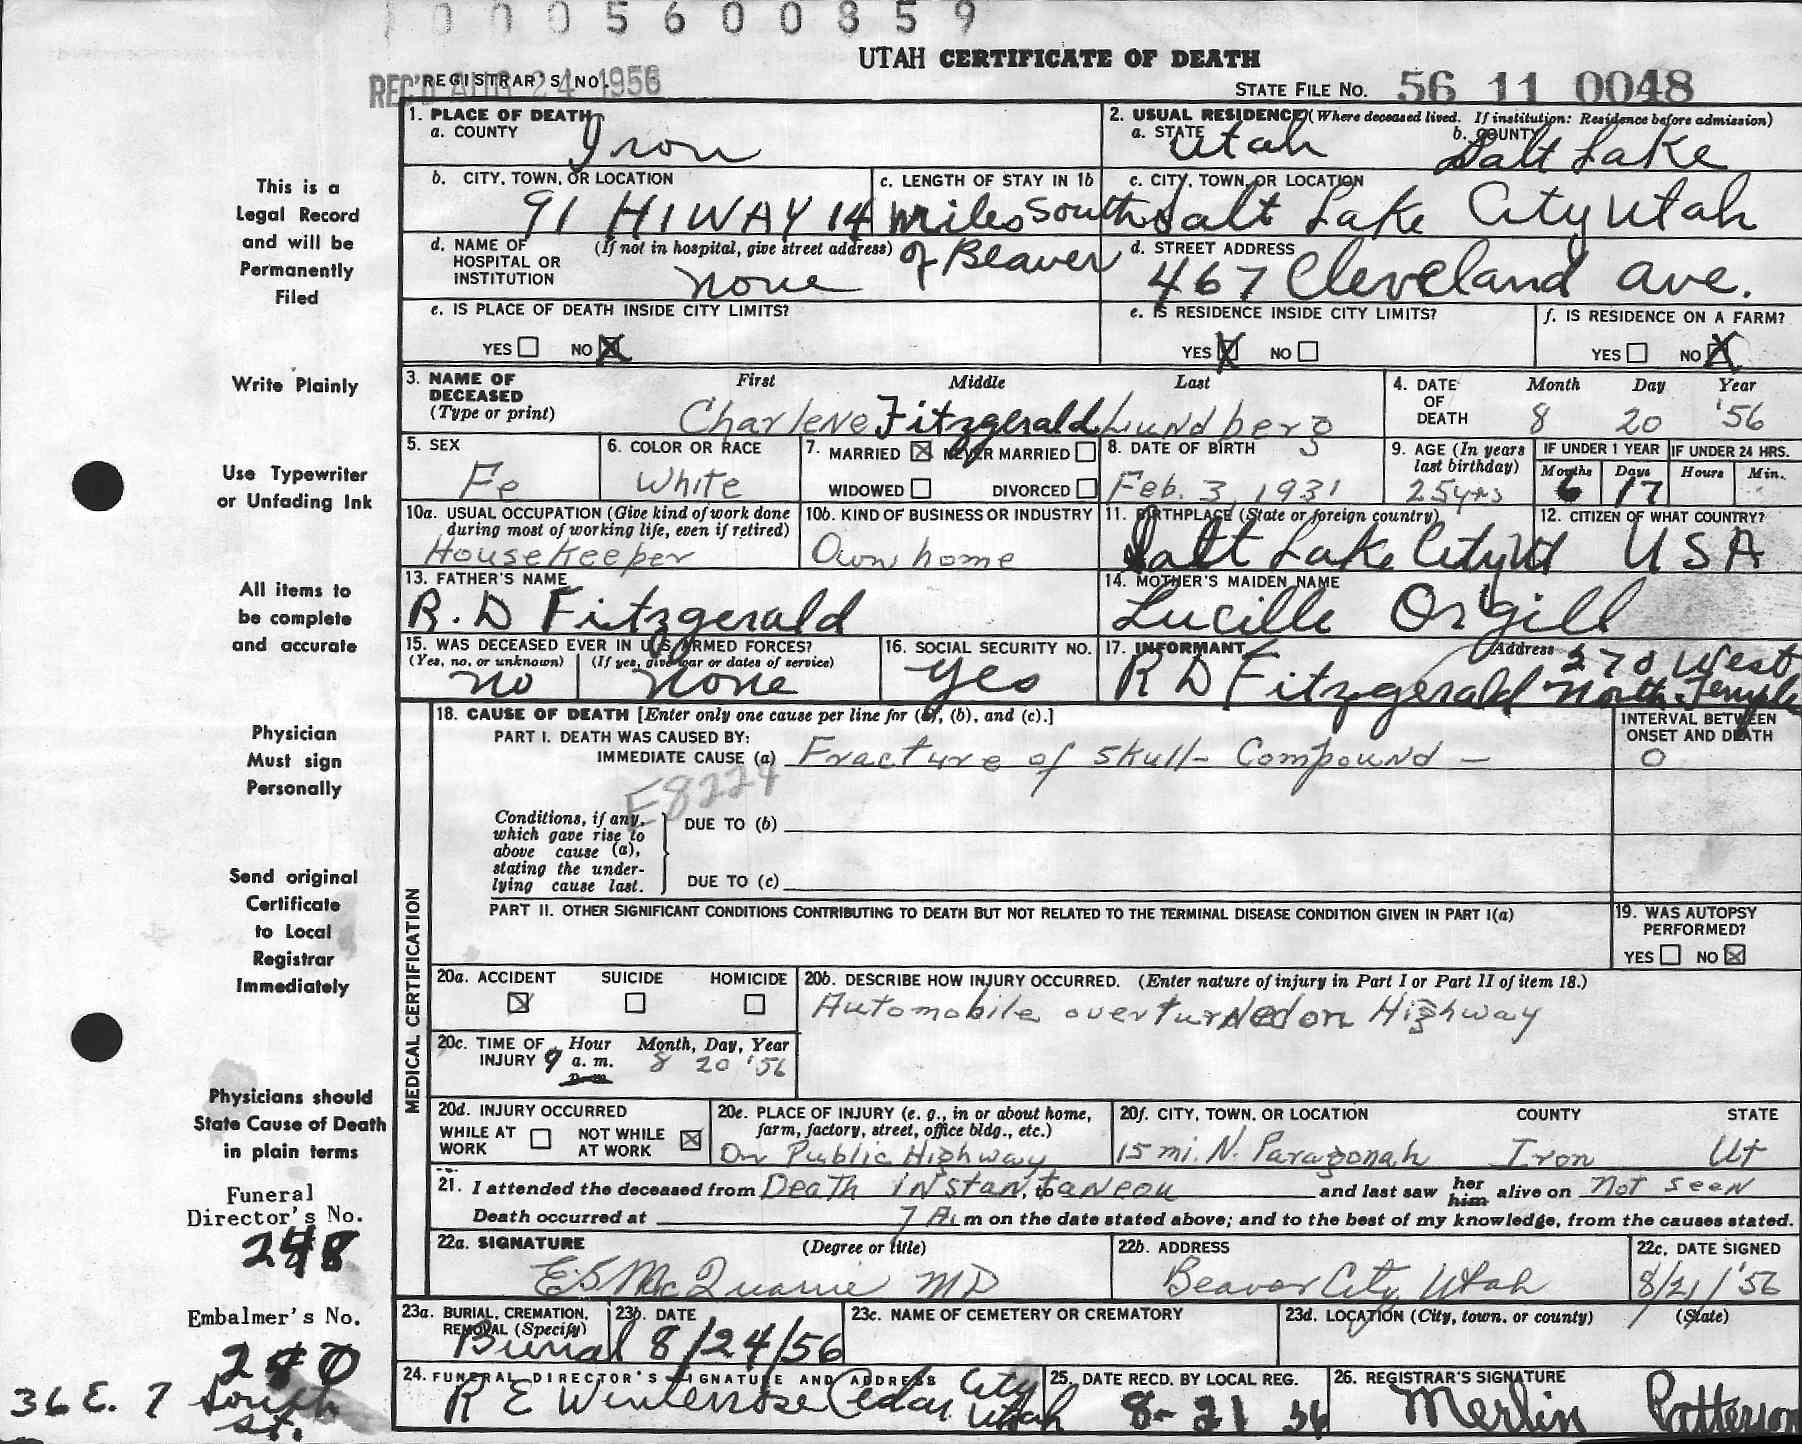 10005600859
UTAH CERTIFICATE OF DEATH
REGISTRAR'S NO.
REC'D AUG 24 1956
STATE FILE NO. 56 11 0048
1. PLACE OF DEATH
a. COUNTY Iron
2. USUAL RESIDENCE (Where deceased lived. If institution: Residence before admission)
a. STATE Utah b. COUNTY Salt Lake
b. CITY, TOWN, OR LOCATION c. LENGTH OF STAY IN 1b
91 HIWAY 14 miles South of Beaver
c. CITY, TOWN, OR LOCATION
Salt Lake City Utah
d. NAME OF HOSPITAL OR INSTITUTION (If not in hospital, give street address)
none
d. STREET ADDRESS
467 Cleveland ave.
e. IS PLACE OF DEATH INSIDE CITY LIMITS?
YES NO X
e. IS RESIDENCE INSIDE CITY LIMITS?
YES X NO
f. IS RESIDENCE ON A FARM?
YES NO X
3. NAME OF DECEASED (Type or print)
First Middle Last
Charlene Fitzgerald Lundberg
4. DATE OF DEATH Month Day Year
8 20 '56
5. SEX
Fe
6. COLOR OR RACE
White
7. MARRIED X NEVER MARRIED
WIDOWED DIVORCED
8. DATE OF BIRTH
Feb. 3, 1931
9. AGE (In years last birthday)
25yrs
IF UNDER 1 YEAR IF UNDER 24 HRS.
Months Days Hours Min.
6 17
10a. USUAL OCCUPATION (Give kind of work done during most of working life, even if retired)
Housekeeper
10b. KIND OF BUSINESS OR INDUSTRY
Own home
11. BIRTHPLACE (State or foreign country)
Salt Lake City Ut
12. CITIZEN OF WHAT COUNTRY?
USA
13. FATHER'S NAME
R. D Fitzgerald
14. MOTHER'S MAIDEN NAME
Lucille Orgill
15. WAS DECEASED EVER IN U.S. ARMED FORCES?
(Yes, no, or unknown) (If yes, give war or dates of service)
no none
16. SOCIAL SECURITY NO.
yes
17. INFORMANT Address
R D Fitzgerald 270 West North Temple
18. CAUSE OF DEATH [Enter only one cause per line for (a), (b), and (c).]
PART I. DEATH WAS CAUSED BY:
IMMEDIATE CAUSE (a) Fracture of skull - Compound -
INTERVAL BETWEEN ONSET AND DEATH
0
E8224
Conditions, if any, which gave rise to above cause (a), stating the underlying cause last.
DUE TO (b)
DUE TO (c)
PART II. OTHER SIGNIFICANT CONDITIONS CONTRIBUTING TO DEATH BUT NOT RELATED TO THE TERMINAL DISEASE CONDITION GIVEN IN PART I(a)
19. WAS AUTOPSY PERFORMED?
YES NO X
20a. ACCIDENT SUICIDE HOMICIDE
X
20b. DESCRIBE HOW INJURY OCCURRED. (Enter nature of injury in Part I or Part II of item 18.)
Automobile overturned on Highway
20c. TIME OF INJURY Hour Month, Day, Year
9 a. m. 8 20 '56
p. m.
20d. INJURY OCCURRED
WHILE AT WORK NOT WHILE AT WORK X
20e. PLACE OF INJURY (e. g., in or about home, farm, factory, street, office bldg., etc.)
On Public Highway
20f. CITY, TOWN, OR LOCATION COUNTY STATE
15 mi. N. Paragonah Iron Ut
21. I attended the deceased from Death instantaneou and last saw her him alive on not seen
Death occurred at 7 A. m on the date stated above; and to the best of my knowledge, from the causes stated.
22a. SIGNATURE (Degree or title)
E S McQuarrie MD
22b. ADDRESS
Beaver City, Utah
22c. DATE SIGNED
8/21/'56
23a. BURIAL, CREMATION, REMOVAL (Specify)
Burial
23b. DATE
8/24/56
23c. NAME OF CEMETERY OR CREMATORY
23d. LOCATION (City, town, or county) (State)
24. FUNERAL DIRECTOR'S SIGNATURE AND ADDRESS
R E Winterrose Cedar City Utah
25. DATE RECD. BY LOCAL REG.
8-21 56
26. REGISTRAR'S SIGNATURE
Merlin Patterson
MEDICAL CERTIFICATION
This is a
Legal Record
and will be
Permanently
Filed
Write Plainly
Use Typewriter
or Unfading Ink
All items to
be complete
and accurate
Physician
Must sign
Personally
Send original
Certificate
to Local
Registrar
Immediately
Physicians should
State Cause of Death
in plain terms
Funeral
Director's No.
248
Embalmer's No.
36 E. 7 South
St.